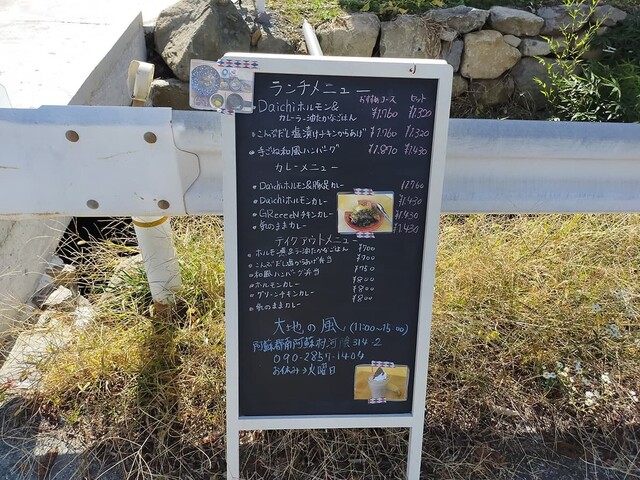 ランチメニュー
おすすめコース セット
Daichiホルモン&
カレーラー油たかなごはん ¥1.760 ¥1.300
こんぶだし塩漬けチキンからあげ ¥1.760 ¥1.320
手ごね和風ハンバーグ ¥1.870 ¥1.430
カレーメニュー
Daichiホルモン&豚足カレー 1760
Daichiホルモンカレー ¥1.430
GReeeeNチキンカレー ¥1.430
気のままカレー ¥1.430
テイクアウトメニュー
ホルモン煮&ラー油たかなごはん ¥700
こんぶだし塩からあげ弁当 ¥700
和風ハンバーグ弁当 ¥750
ホルモンカレー ¥800
グリーンチキンカレー ¥800
気のままカレー ¥800
大地の風 (11:00~15:00)
阿蘇郡南阿蘇村河陽314-2
090-2857-1404
お休み→火曜日